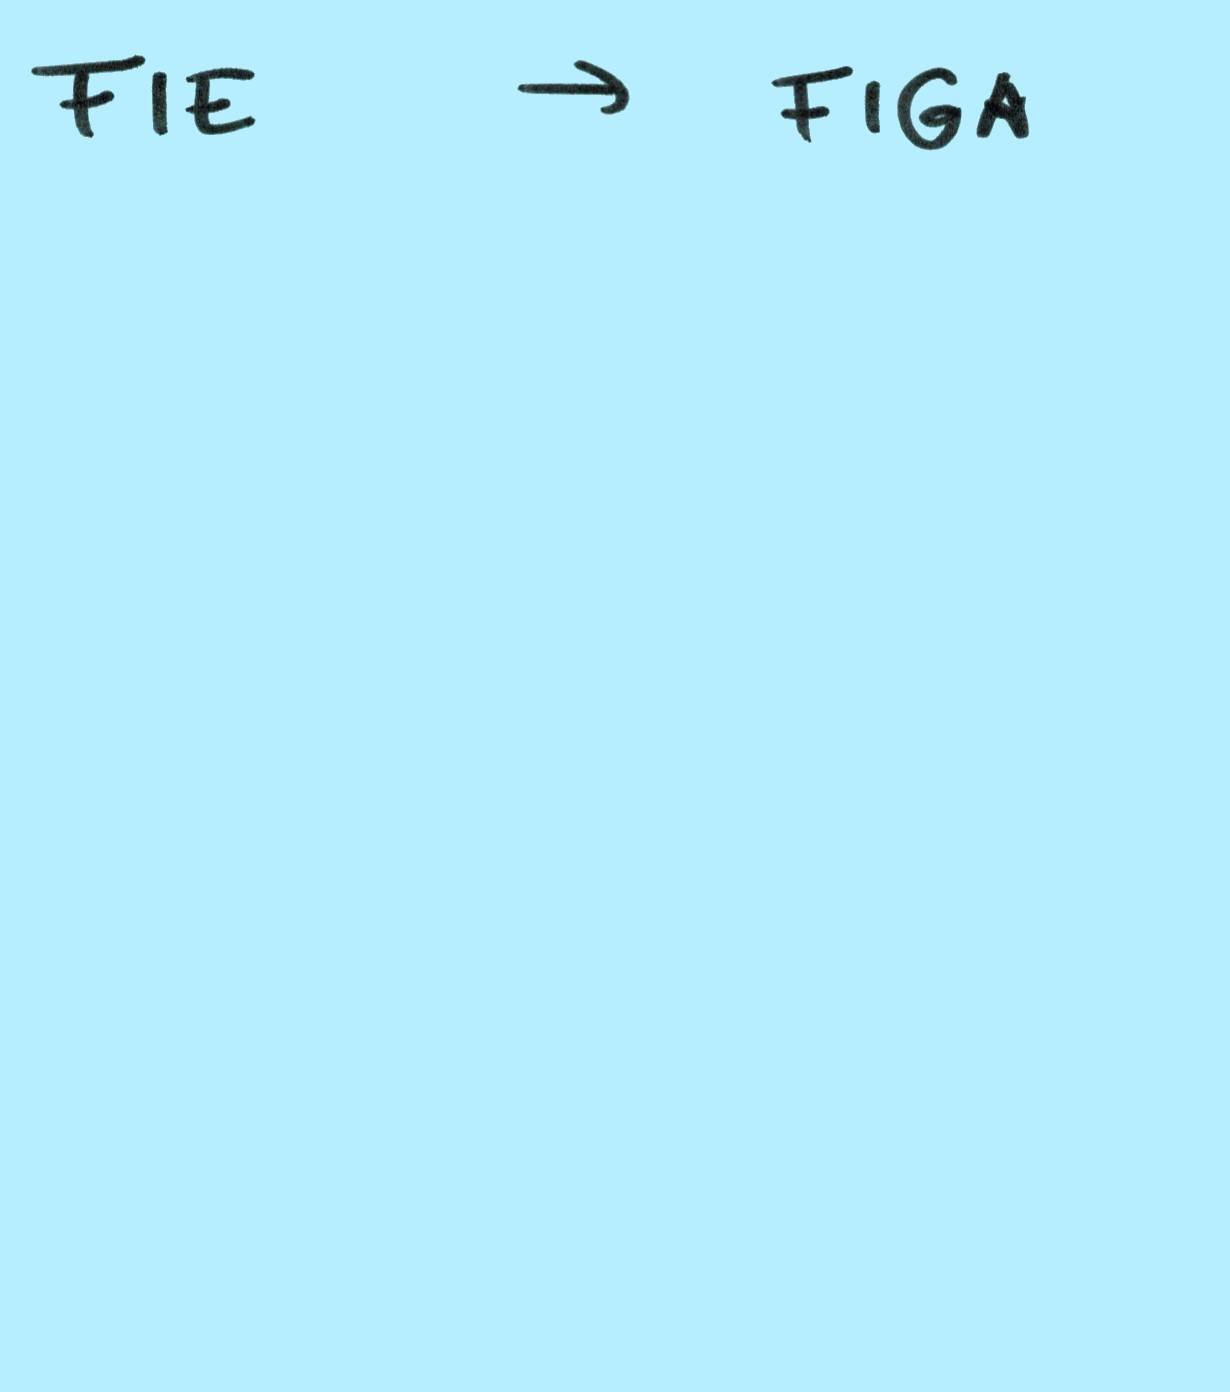 FIE → FIGA